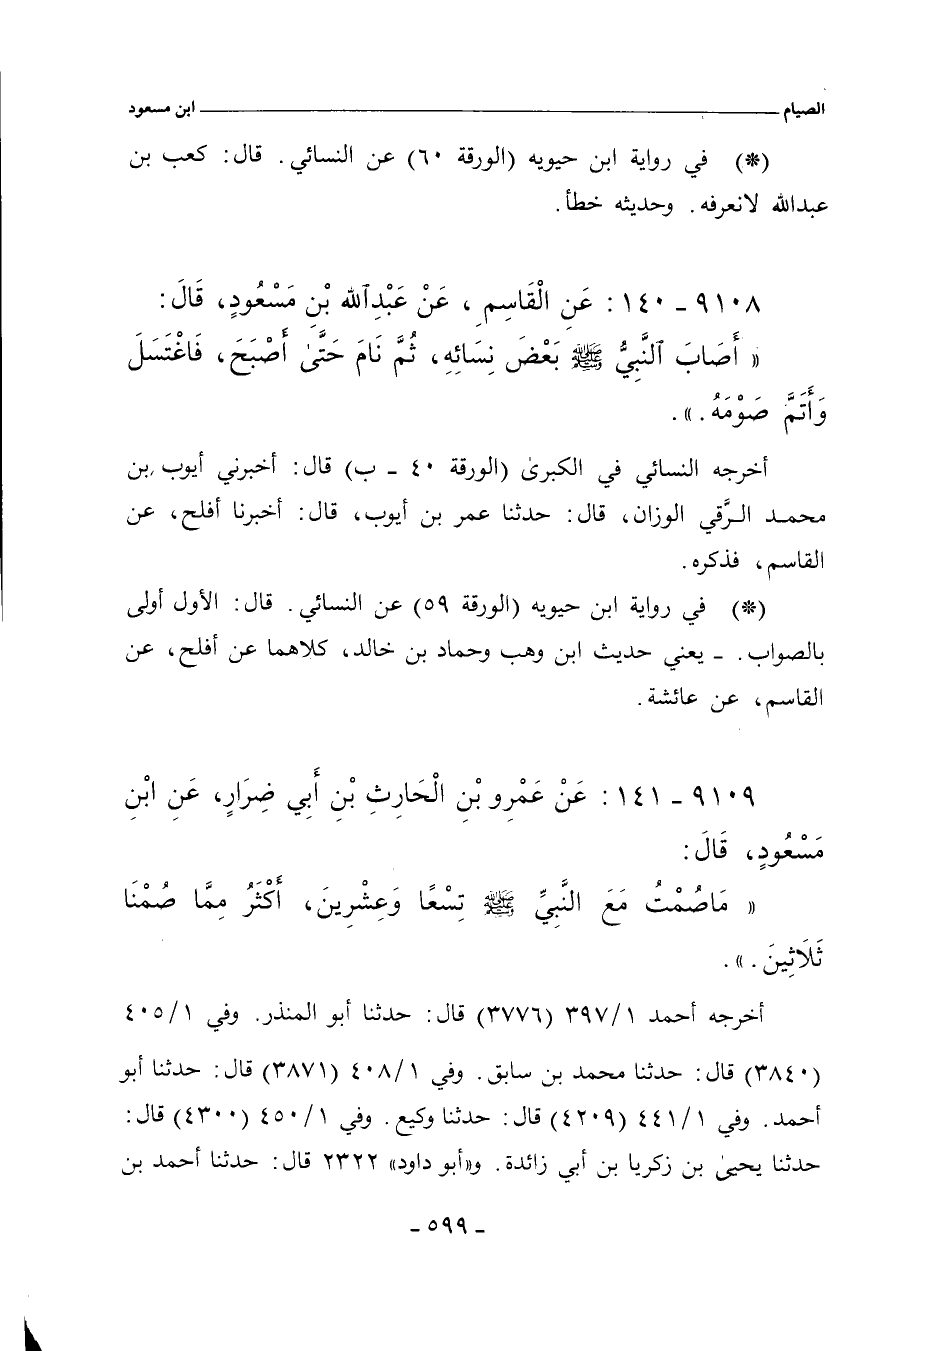 الصيام ـــــــــ ابن مسعود
(*) في رواية ابن حيويه (الورقة ٦٠) عن النسائي. قال: كعب بن
عبدالله لانعرفه. وحديثه خطأ.
٩١٠٨ - ١٤٠: عَنِ الْقَاسِمِ، عَنْ عَبْدِاللهِ بْنِ مَسْعُودٍ، قَالَ:
« أَصَابَ النَّبِيُّ ﷺ بَعْضَ نِسَائِهِ، ثُمَّ نَامَ حَتَّىٰ أَصْبَحَ، فَاغْتَسَلَ
وَأَتَمَّ صَوْمَهُ. ».
أخرجه النسائي في الكبرىٰ (الورقة ٤٠ - ب) قال: أخبرني أيوب بن
محمد الرَّقي الوزان، قال: حدثنا عمر بن أيوب، قال: أخبرنا أفلح، عن
القاسم، فذكره.
(*) في رواية ابن حيويه (الورقة ٥٩) عن النسائي. قال: الأول أولى
بالصواب. - يعني حديث ابن وهب وحماد بن خالد، كلاهما عن أفلح، عن
القاسم، عن عائشة.
٩١٠٩ - ١٤١: عَنْ عَمْرِو بْنِ الْحَارِثِ بْنِ أَبِي ضِرَارٍ، عَنِ ابْنِ
مَسْعُودٍ، قَالَ:
« مَاصُمْتُ مَعَ النَّبِيِّ ﷺ تِسْعًا وَعِشْرِينَ، أَكْثَرُ مِمَّا صُمْنَا
ثَلَاثِينَ. ».
أخرجه أحمد ٣٩٧/١ (٣٧٧٦) قال: حدثنا أبو المنذر. وفي ٤٠٥/١
(٣٨٤٠) قال: حدثنا محمد بن سابق. وفي ٤٠٨/١ (٣٨٧١) قال: حدثنا أبو
أحمد. وفي ٤٤١/١ (٤٢٠٩) قال: حدثنا وكيع. وفي ٤٥٠/١ (٤٣٠٠) قال:
حدثنا يحيىٰ بن زكريا بن أبي زائدة. و«أبو داود» ٢٣٢٢ قال: حدثنا أحمد بن
- ٥٩٩ -